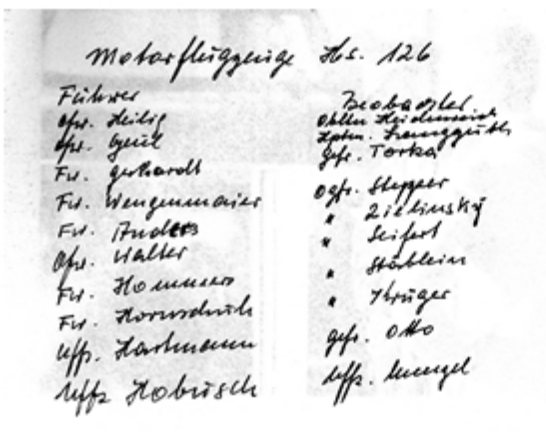 Motorflugzeuge Hs. 126
Führer
Ofw. Heilig
Ofw.
Fw. Gerhardt
Fw. Wengenmaier
Fw. Anders
Ofw. Walter
Fw. Hommers
Fw. Hornschuh
Uffz. Hartmann
Uffz Hobusch
Beobachter
Obltn
Hptm.
Gefr. Torka
Ogfr. Stepper
" Zielinsky
" Seifert
" Stäblein
" Krüger
Gefr. Otto
Uffz. Mengel